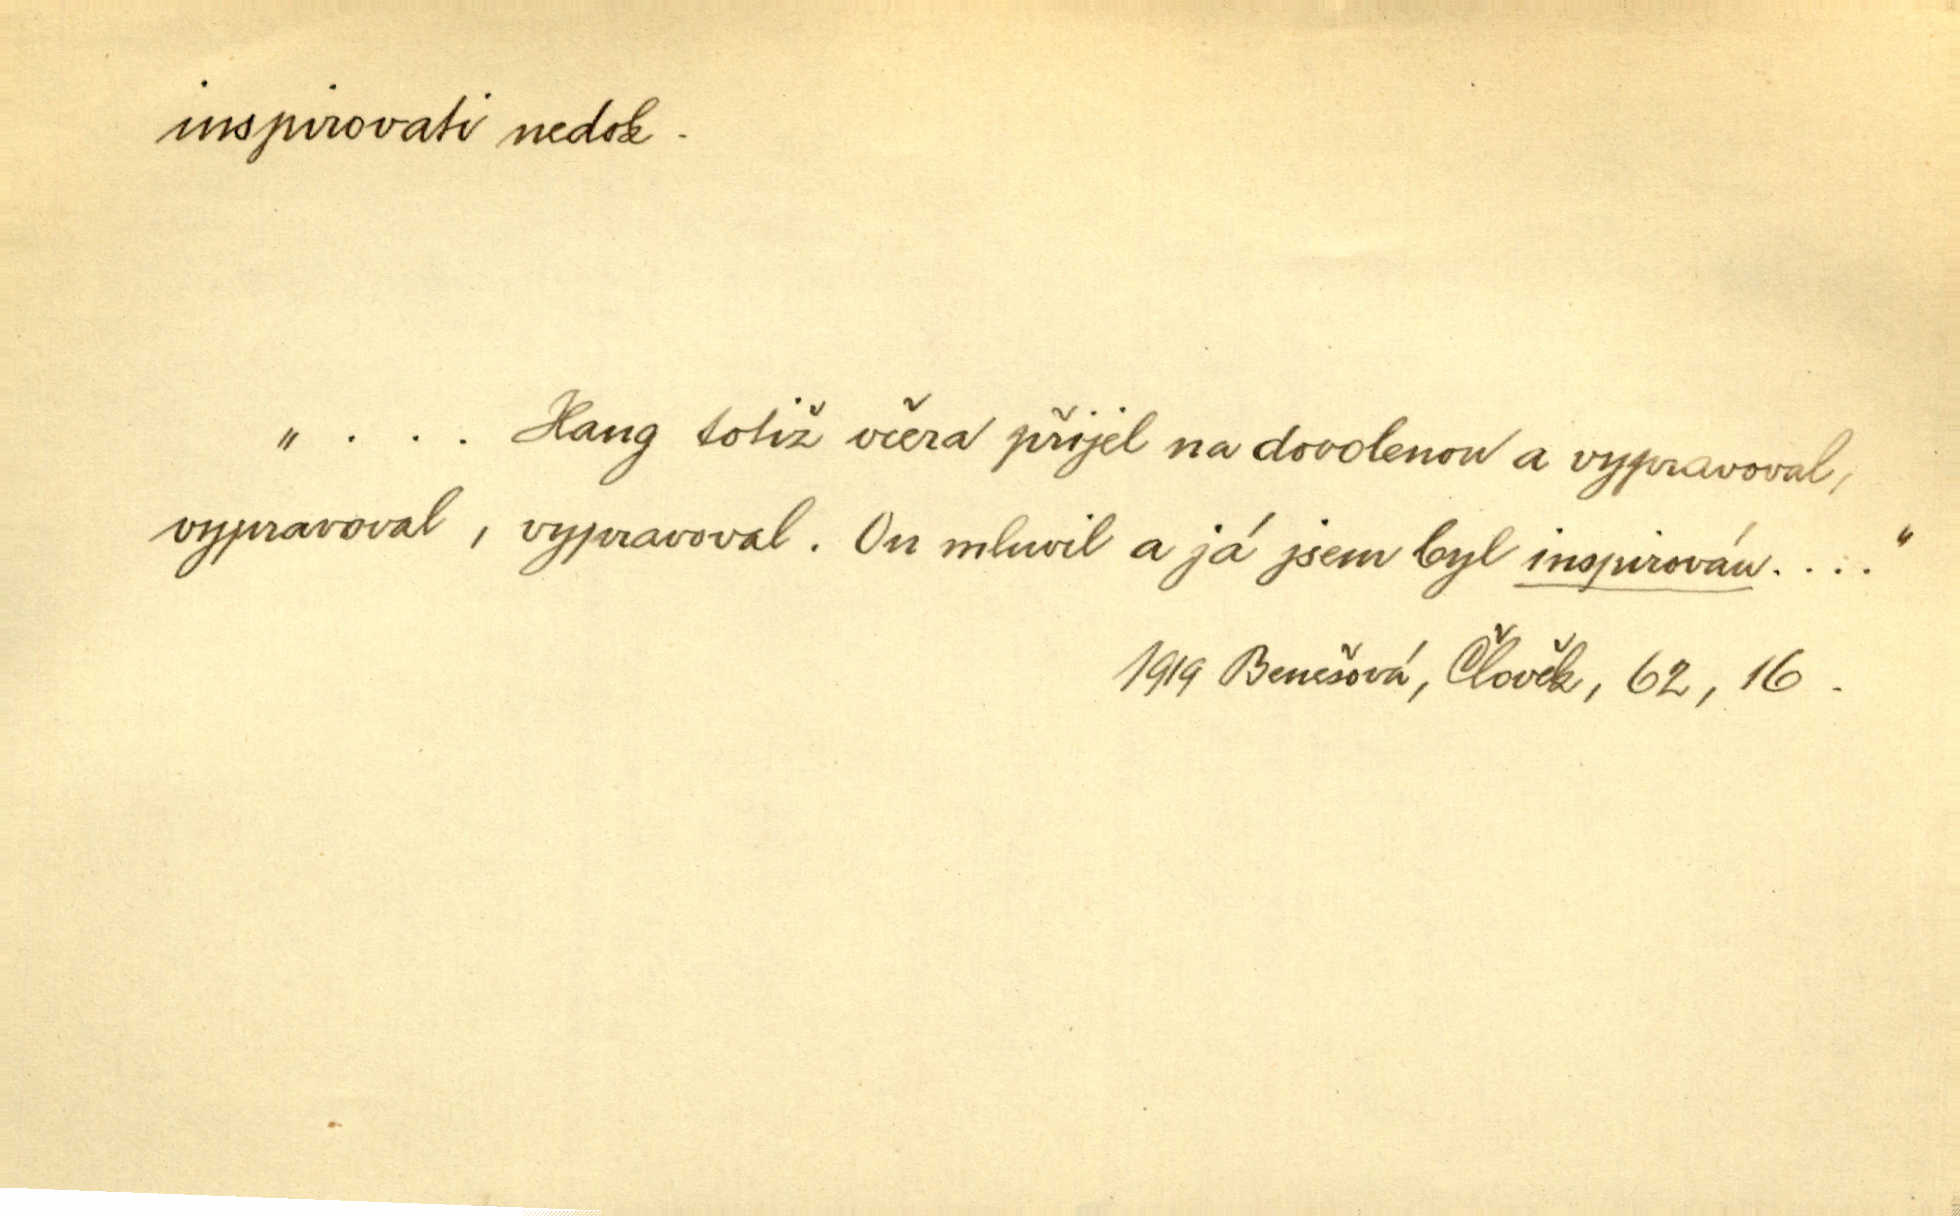 inspirovati nedok.
„ . . . Haug totiž včera přijel na dovolenou a vypravoval,
vypravoval, vypravoval. On mluvil a já jsem byl inspirován. . . .“
1919 Benešová, Člověk, 62, 16.